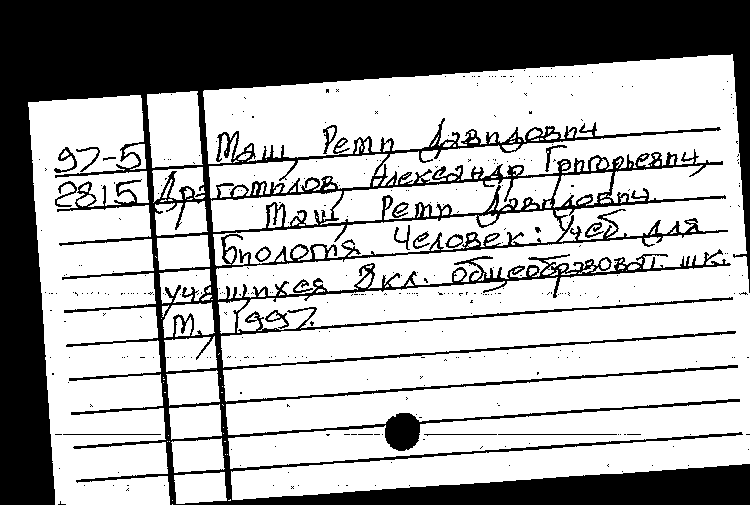 Маш, Реми Давидович
97-5
2815 Драгомилов, Александр Григорьевич,
Маш, Реми Давидович.
Биология. Человек: Учеб. для
учащихся 8 кл. общеобразоват. шк.
М., 1997.